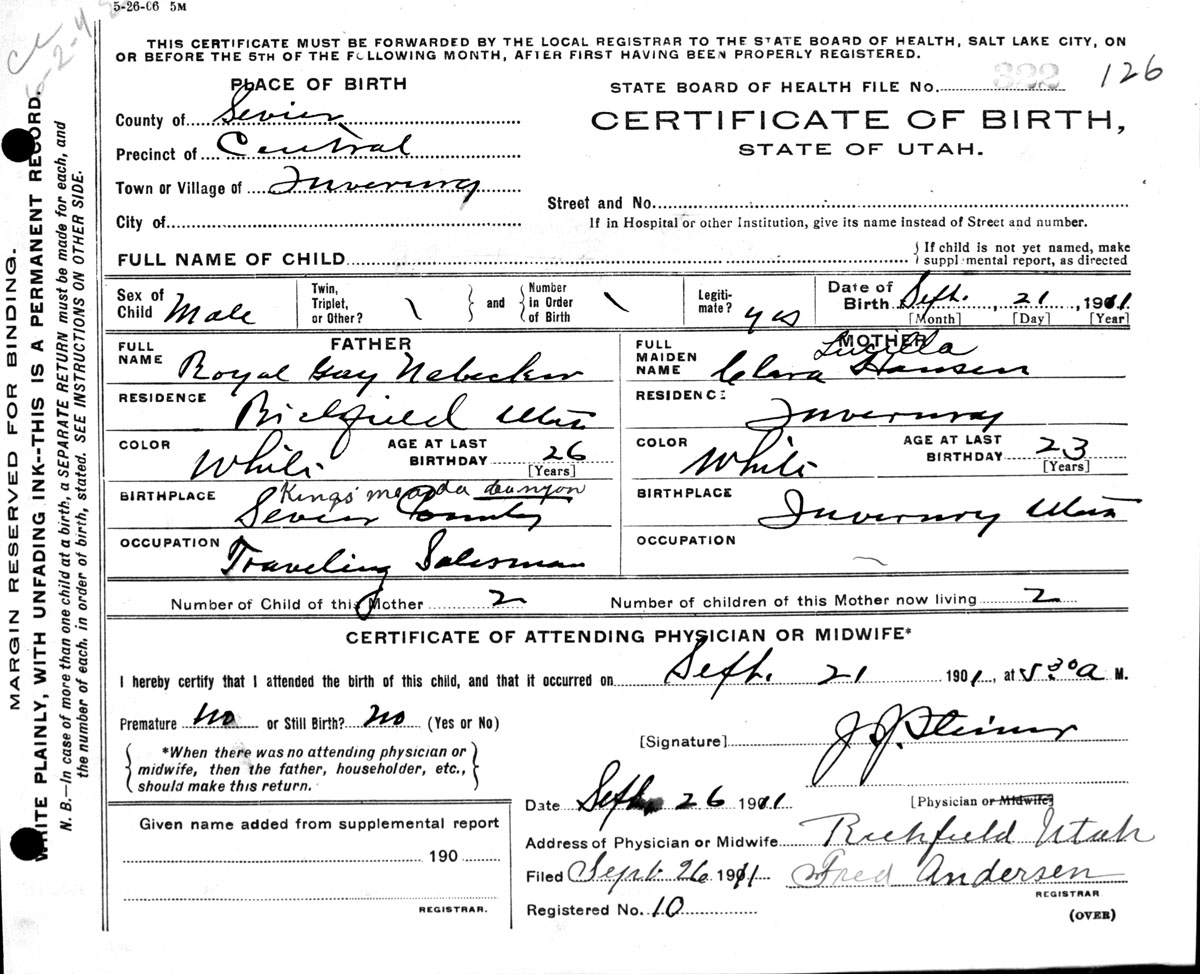 5-26-06 5M
THIS CERTIFICATE MUST BE FORWARDED BY THE LOCAL REGISTRAR TO THE STATE BOARD OF HEALTH, SALT LAKE CITY, ON
OR BEFORE THE 5TH OF THE FOLLOWING MONTH, AFTER FIRST HAVING BEEN PROPERLY REGISTERED.
PLACE OF BIRTH
County of Sevier
Precinct of Central
Town or Village of Inverury
City of
STATE BOARD OF HEALTH FILE No. 322 126
CERTIFICATE OF BIRTH,
STATE OF UTAH.
Street and No.
If in Hospital or other Institution, give its name instead of Street and number.
FULL NAME OF CHILD
If child is not yet named, make
supplemental report, as directed
Sex of Child Male
Twin, Triplet, or Other? \
and
Number in Order of Birth \
Legiti-mate? yes
Date of Birth Sept. 21, 1911
[Month] [Day] [Year]
FATHER
FULL NAME Royal Gay Nebeker
RESIDENCE Richfield Utah
COLOR White
AGE AT LAST BIRTHDAY 26
[Years]
BIRTHPLACE Kings meadow canyon
Sevier County
OCCUPATION Traveling Salesman
MOTHER
FULL MAIDEN NAME Clara Lucilla Hansen
RESIDENCE Inverury
COLOR White
AGE AT LAST BIRTHDAY 23
[Years]
BIRTHPLACE Inverury Utah
OCCUPATION
Number of Child of this Mother 2 Number of children of this Mother now living 2
CERTIFICATE OF ATTENDING PHYSICIAN OR MIDWIFE*
I hereby certify that I attended the birth of this child, and that it occurred on Sept. 21 1901, at 5 30 a M.
Premature no or Still Birth? no (Yes or No)
*When there was no attending physician or
midwife, then the father, householder, etc.,
should make this return.
[Signature] J. J. Steiner
[Physician or Midwife]
Date Sept. 26 1911
Address of Physician or Midwife Richfield Utah
Filed Sept. 26 1911 Fred Andersen
REGISTRAR
Registered No. 10
(OVER)
Given name added from supplemental report
190
REGISTRAR.
MARGIN RESERVED FOR BINDING.
WRITE PLAINLY, WITH UNFADING INK--THIS IS A PERMANENT RECORD.
N. B.—In case of more than one child at a birth, a SEPARATE RETURN must be made for each, and
the number of each, in order of birth, stated. SEE INSTRUCTIONS ON OTHER SIDE.